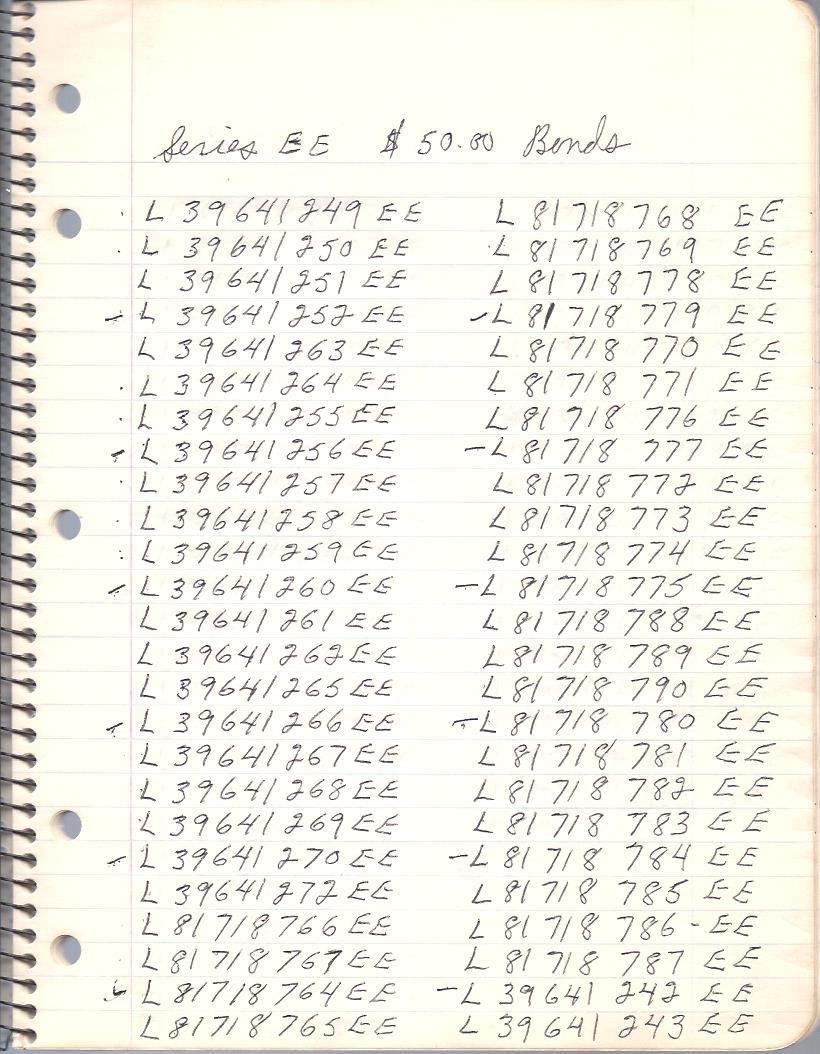 Series EE $ 50.00 Bonds
L 39641249 EE L 81718768 EE
L 39641250 EE L 81718769 EE
L 39641251 EE L 81718778 EE
- L 39641252 EE -L 81718 779 EE
L 39641263 EE L 81718 770 EE
L 39641264 EE L 81718 771 EE
L 39641255 EE L 81718 776 EE
- L 39641256 EE -L 81718 777 EE
L 39641257 EE L 81718 772 EE
L 39641258 EE L 81718 773 EE
L 39641259 EE L 81718 774 EE
- L 39641260 EE -L 81718 775 EE
L 39641261 EE L 81718 788 EE
L 39641262 EE L 81718 789 EE
L 39641265 EE L 81718 790 EE
- L 39641266 EE -L 81718 780 EE
L 39641267 EE L 81718 781 EE
L 39641268 EE L 81718 782 EE
L 39641269 EE L 81718 783 EE
- L 39641270 EE -L 81718 784 EE
L 39641272 EE L 81718 785 EE
L 81718766 EE L 81718 786-EE
L 81718767 EE L 81718 787 EE
- L 81718764 EE -L 39641 242 EE
L 81718765 EE L 39641 243 EE